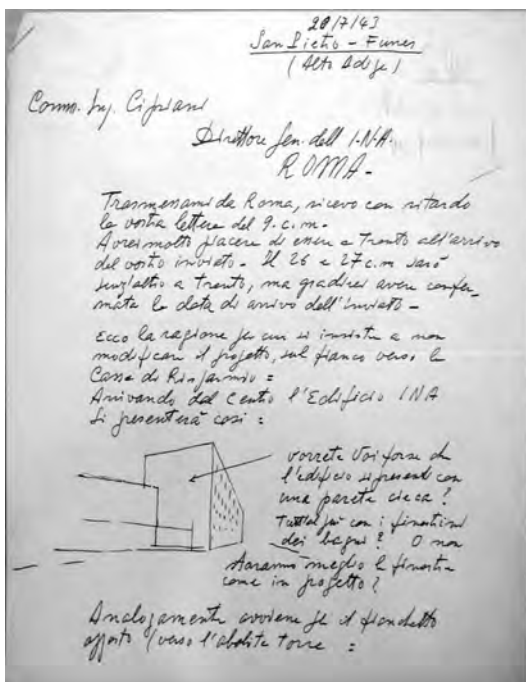 20/7/43
San Pietro - Funes
(Alto Adige)
Comm. Ing. Cipriani
Direttore Gen. dell' I.N.A.
ROMA -
Trasmessami da Roma, ricevo con ritardo
la vostra lettera del 9. c.m. -
Avrei molto piacere di essere a Trento all'arrivo
del vostro inviato - Il 26 e 27 c.m. sarò
senz'altro a Trento, ma gradirei avere confer-
mata la data di arrivo dell'inviato -
Ecco la ragione per cui si insiste a non
modificare il progetto, sul fianco verso la
Cassa di Risparmio =
Arrivando dal Centro l'Edificio INA
si presenterà così :
vorrete Voi forse che
l'edificio si presenti con
una parete cieca ?
Tutt'al più con i finestrini
dei bagni ? O non
staranno meglio le finestre
come in progetto ?
Analogamente avviene per il fianchetto
opposto (verso l'abolita torre :